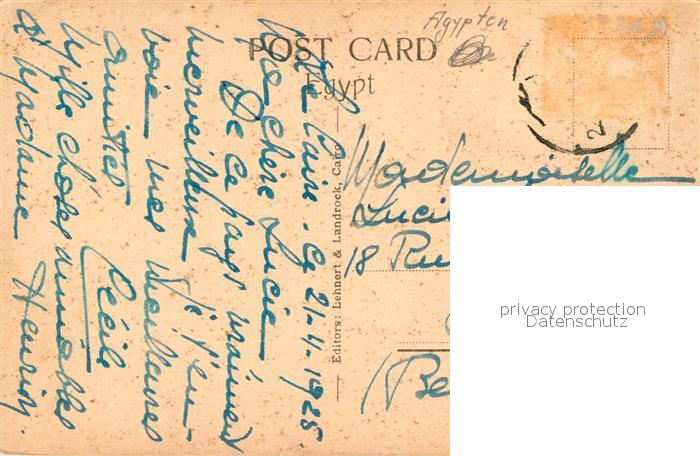 Ägypten
POST CARD
Egypt
Le Caire. Ce 21-4-1928.
Ma chère Lucie
De ce pays vraiment
merveilleux je t'en-
voie mes meilleures
amitiés Cécile
Mille choses aimables
à Madame Henrion.
Editors: Lehnert & Landrock, Cairo
Mademoiselle
18 Ru
(Be
privacy protection
Datenschutz